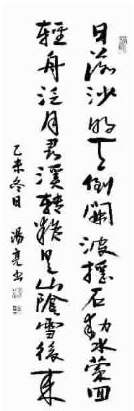 日落沙明天倒開波搖石動水縈回
輕舟泛月尋溪轉疑是山陰雪後來
乙未冬日 湯亮书